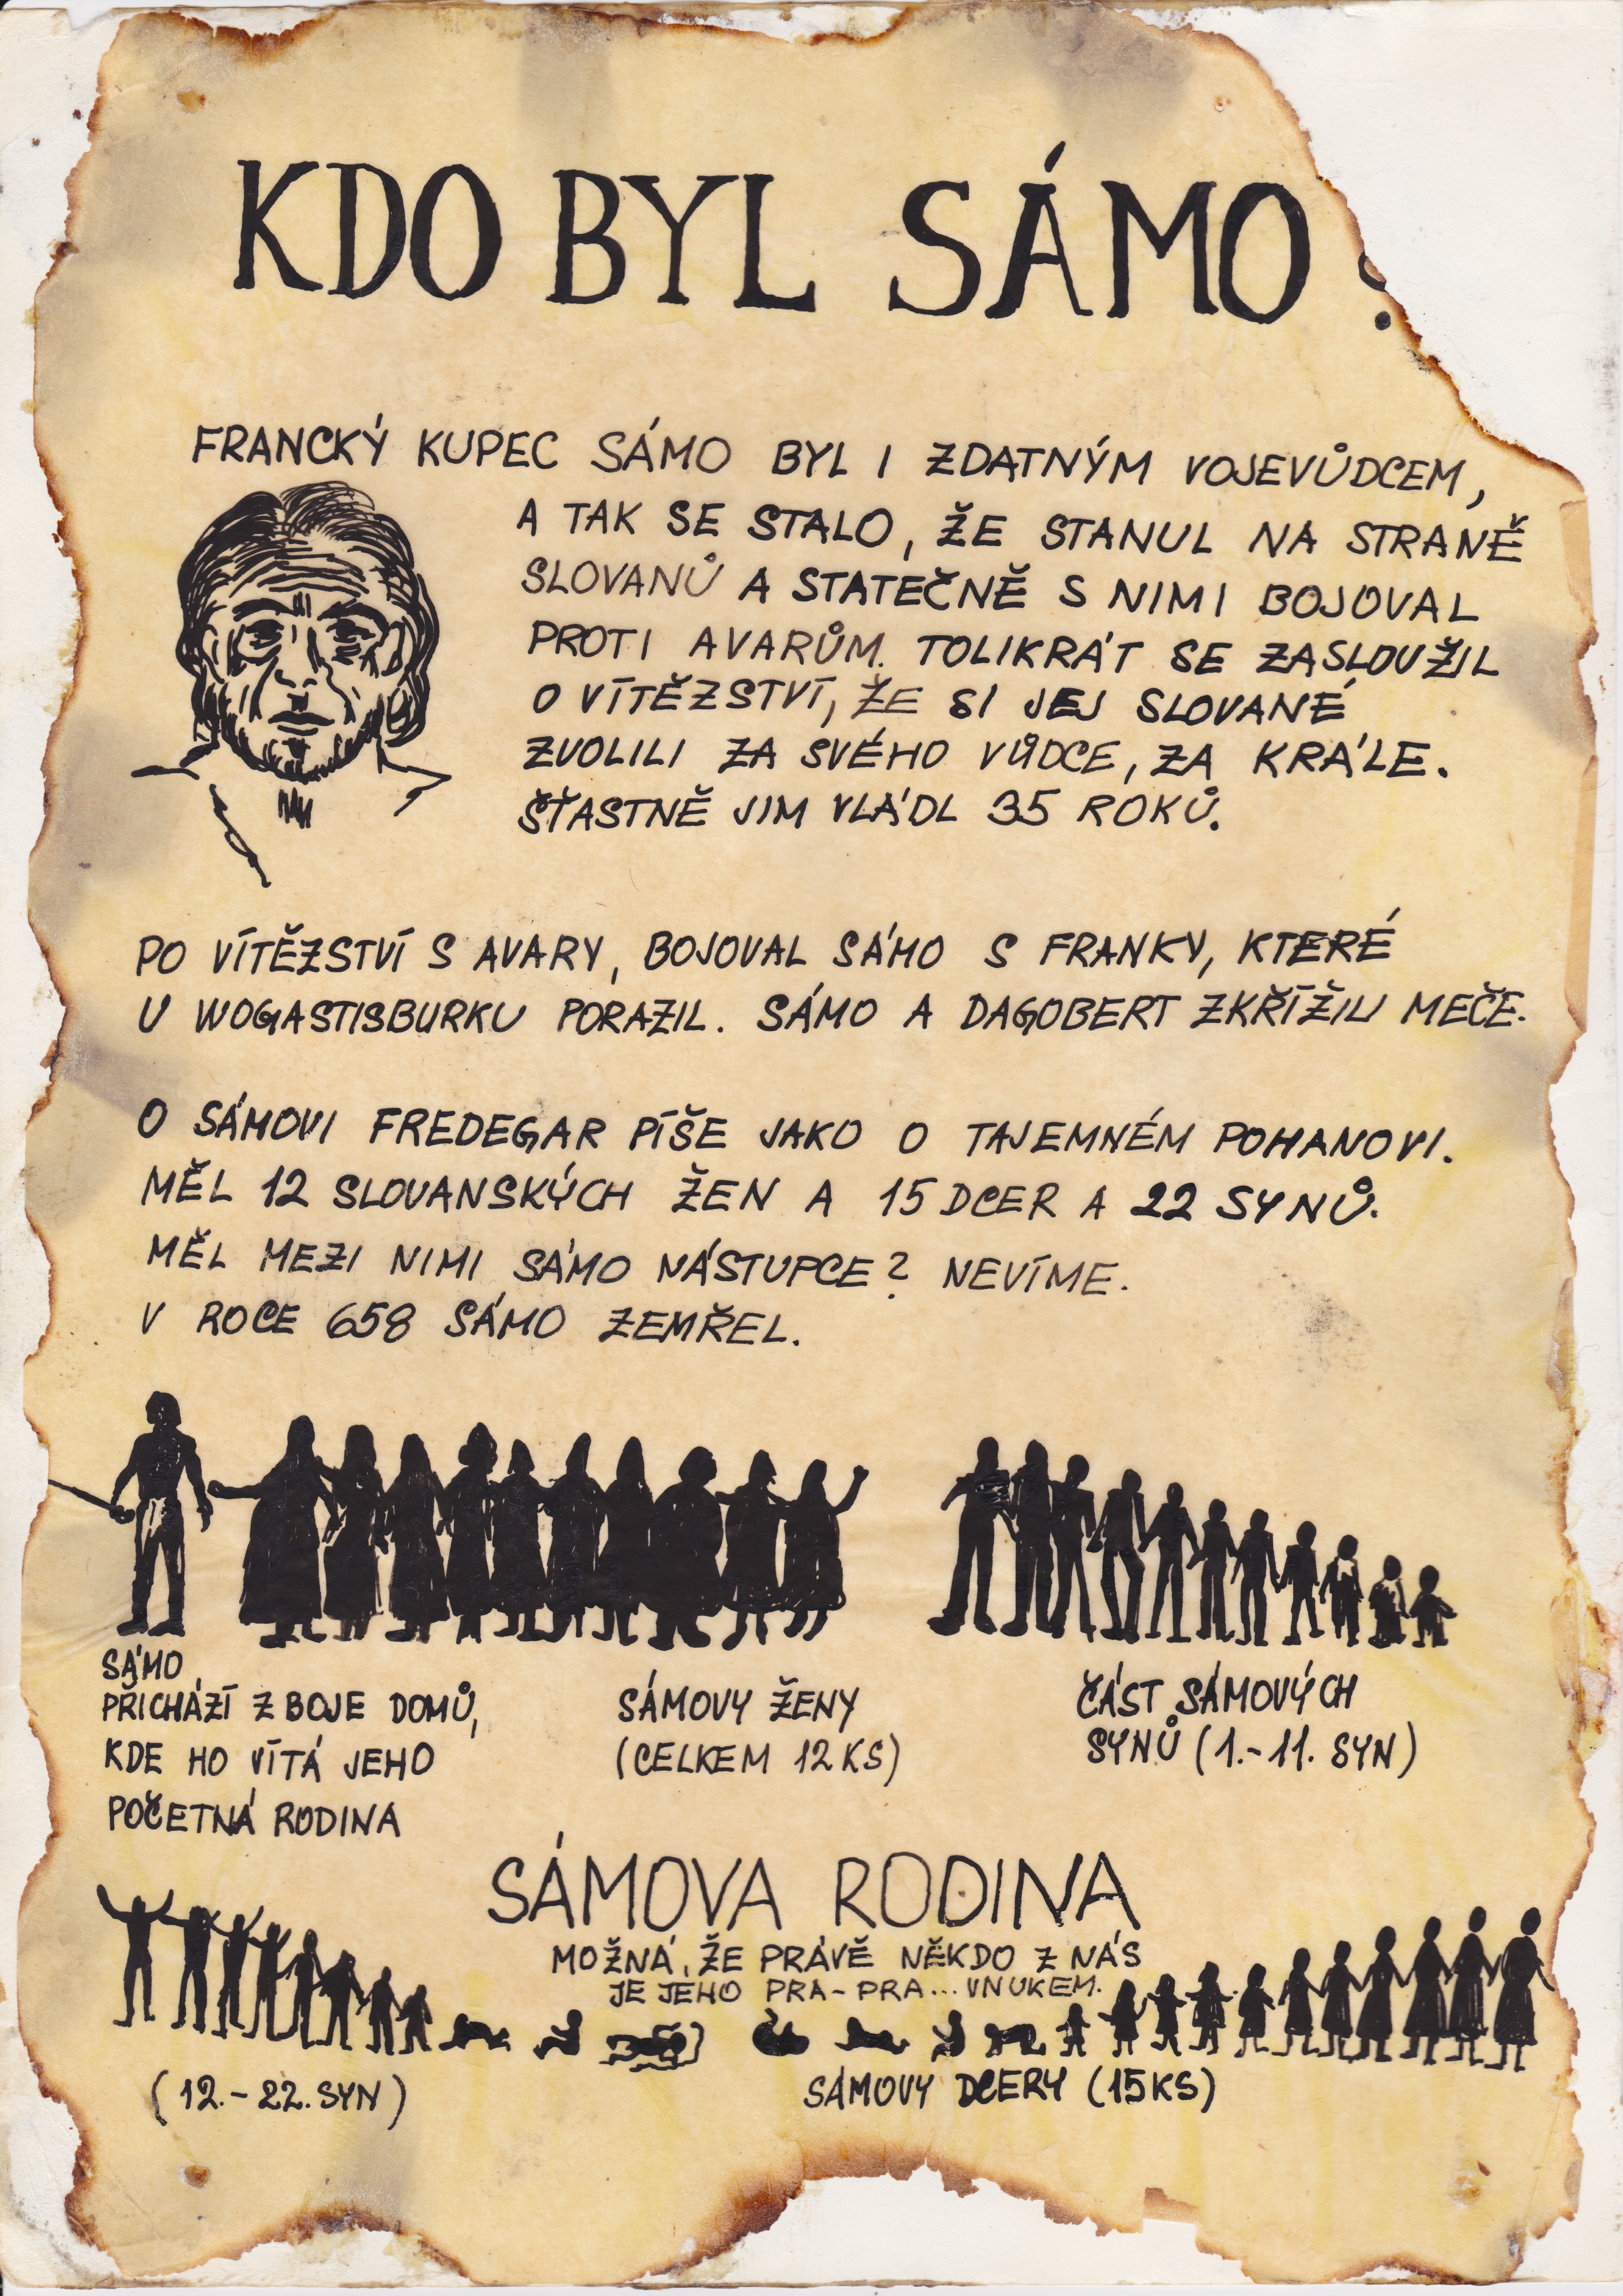 KDO BYL SÁMO ?
FRANCKÝ KUPEC SÁMO BYL I ZDATNÝM VOJEVŮDCEM,
A TAK SE STALO, ŽE STANUL NA STRANĚ
SLOVANŮ A STATEČNĚ S NIMI BOJOVAL
PROTI AVARŮM. TOLIKRÁT SE ZASLOUŽIL
O VÍTĚZSTVÍ, ŽE SI JEJ SLOVANÉ
ZVOLILI ZA SVÉHO VŮDCE, ZA KRÁLE.
ŠŤASTNĚ JIM VLÁDL 35 ROKŮ.
PO VÍTĚZSTVÍ S AVARY, BOJOVAL SÁMO S FRANKY, KTERÉ
U WOGASTISBURKU PORAZIL. SÁMO A DAGOBERT ZKŘÍŽILI MEČE.
O SÁMOVI FREDEGAR PÍŠE JAKO O TAJEMNÉM POHANOVI.
MĚL 12 SLOVANSKÝCH ŽEN A 15 DCER A 22 SYNŮ.
MĚL MEZI NIMI SÁMO NÁSTUPCE? NEVÍME.
V ROCE 658 SÁMO ZEMŘEL.
SÁMO
PŘICHÁZÍ Z BOJE DOMŮ,
KDE HO VÍTÁ JEHO
POČETNÁ RODINA
SÁMOVY ŽENY
(CELKEM 12 KS)
ČÁST SÁMOVÝCH
SYNŮ (1.-11. SYN)
SÁMOVA RODINA
MOŽNÁ, ŽE PRÁVĚ NĚKDO Z NÁS
JE JEHO PRA-PRA... VNUKEM.
(12.-22. SYN)
SÁMOVY DCERY (15 KS)